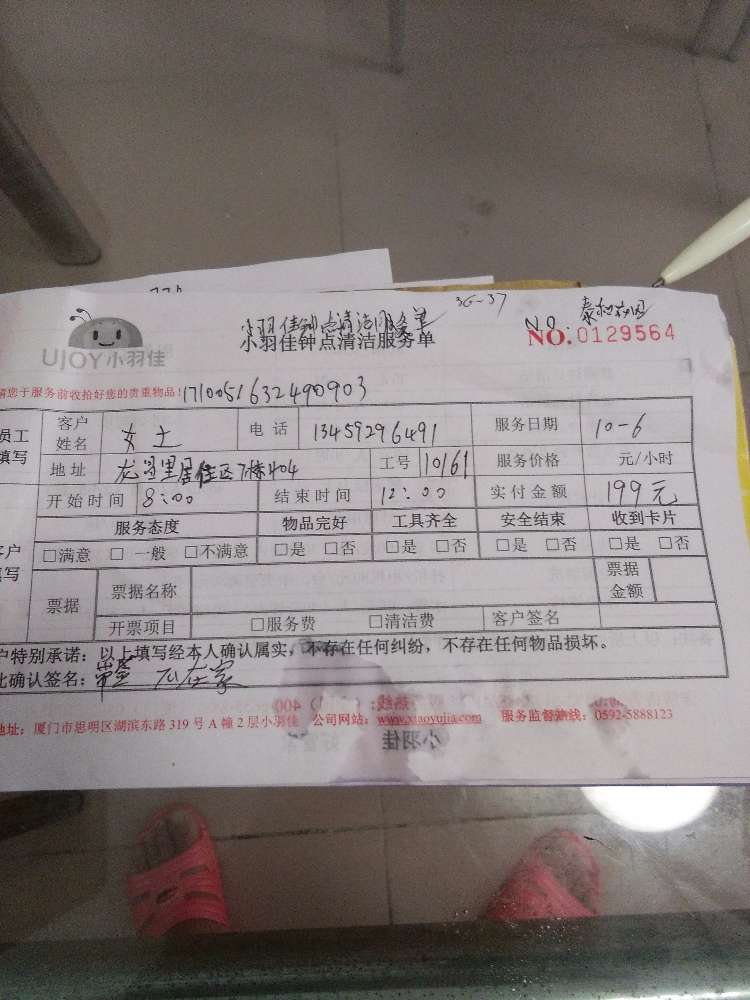 3G-37
小羽佳钟点清洁服务单 NO. 泰和花园
UJOY小羽佳 小羽佳钟点清洁服务单 NO.0129564
请您于服务前收拾好您的贵重物品! 1710051632490903
员工填写 客户姓名 女士 电话 13459296491 服务日期 10-6
地址 龙 里居住区7栋404 工号 10161 服务价格 元/小时
开始时间 8:00 结束时间 12:00 实付金额 199元
服务态度 物品完好 工具齐全 安全结束 收到卡片
客户填写 □满意 □一般 □不满意 □是 □否 □是 □否 □是 □否 □是 □否
票据 票据名称 票据金额
开票项目 □服务费 □清洁费 客户签名
户特别承诺:以上填写经本人确认属实,不存在任何纠纷,不存在任何物品损坏。
此确认签名: 不在家
热线: 400
地址:厦门市思明区湖滨东路 319 号 A 幢 2 层小羽佳 公司网站:www.xiaoyujia.com 服务监督热线:0592-5888123
小羽佳